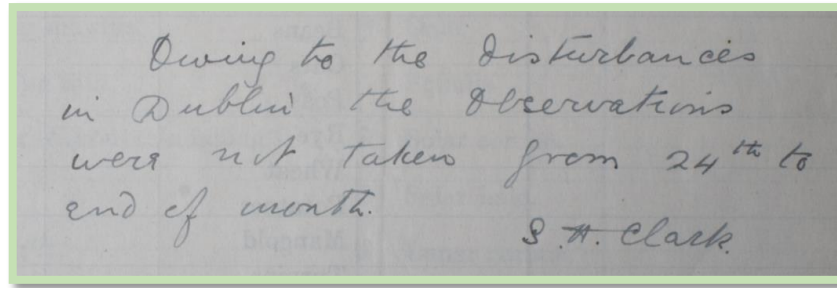 Owing to the disturbances
in Dublin the Observations
were not taken from 24th to
end of month.
S. H. Clark.